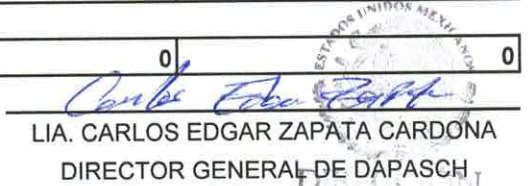 ESTADOS UNIDOS MEXICANOS
0 0
Carlos Edgar Zapata
LIA. CARLOS EDGAR ZAPATA CARDONA
DIRECTOR GENERAL DE DAPASCH